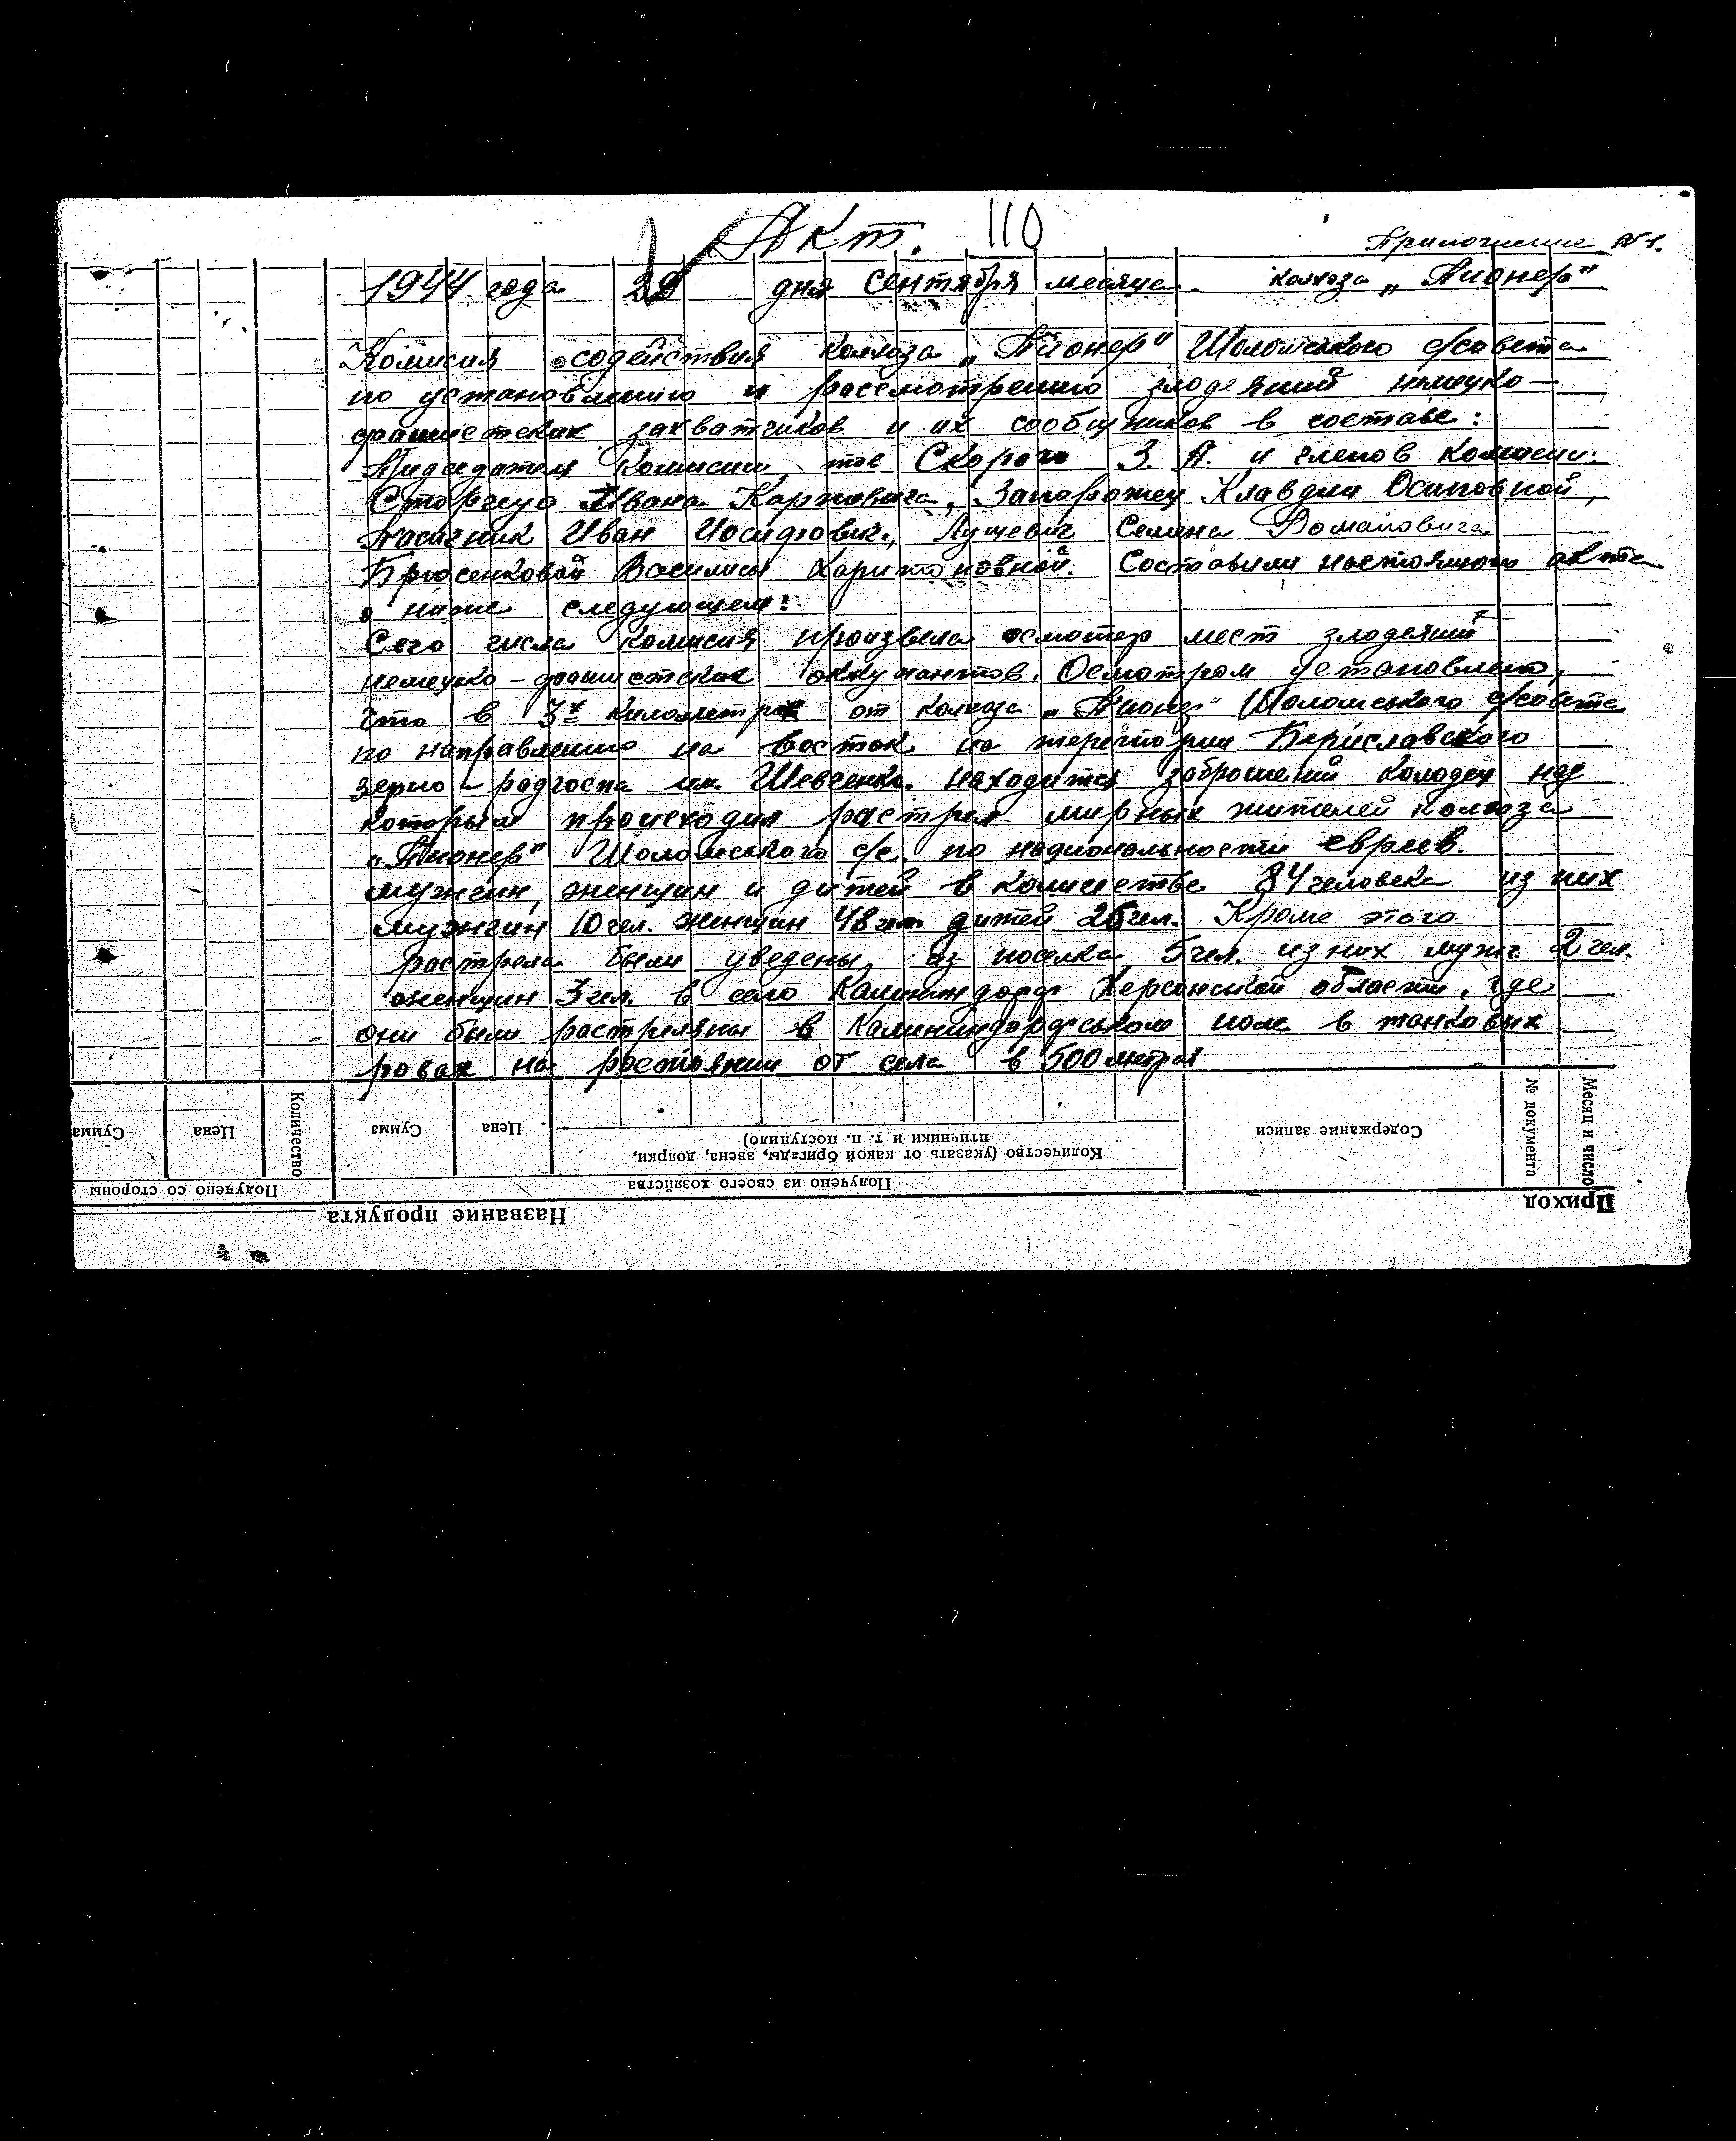 Акт. 110
Приложение №1.
1944 года 29 дня сентября месяца. колхоза „Пионер"
Комисия содействия колхоза „Пионер" Шоломського с/совета
по установлению и рассмотрению злодеяний немецко-
фашистских захватчиков и их сообщников в составе:
Председателя комисии тов Скорого З. А. и членов комисии:
Сторчеуо Ивана Карповича, Запорожец Клавдии Осиповной,
Пасичник Иван Иосифович, Луцевич Семена Романовича
Брюсенковой Василисы Харитоновной. Составили настоящого акта
о ниже следующем:
Сего числа комисия произвела осмотер мест злодеяний
немецко-фашистских оккупантов. Осмотром установлено,
что в 3х километрах от колхоза „Пионер" Шоломського с/совета
по направлению на восток на теретории Бериславского
зерно-радгоспа им. Шевченко. находится заброшений колодец над
которым происходил растрел мирных жителей колхоза
„Пионер" Шоломського с/с. по национальности евреев.
мужчин, женщин и дитей в количестве 84 человека из них
мужчин 10 чел. женщин 48 чел. дитей 26 чел. Кроме этого
растрела были уведены из поселка 5 чел. из них мужч. 2 чел.
женщин 3 чел. в село Калининдорф Херсонской области, где
они были растреляны в Калининдорфського поле в танковых
ровах на ростоянии от села в 500 метрах
Сумма
Цена
Количество
Сумма
Цена
Количество (указать от какой бригады, звена, доярки,
птичники и т. п. поступило)
Содержание записи
№ документа
Месяц и число
Получено со стороны
Получено из своего хозяйства
Название продукта
Приход